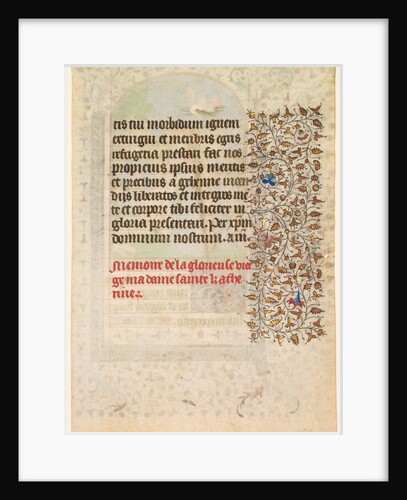 tis tui morbidum ignem
extingui et menbris egris
refrigeria prestari fac nos
propicius ipsius meritis
et precibus a gehenne incen
dijs liberatos et integros me
te et corpore tibi feliciter in
gloria presentari. Per xp̄m
dominum nostrum. am.
Memoire de la glorieuse vier
ge ma dame sainte kathe
rine